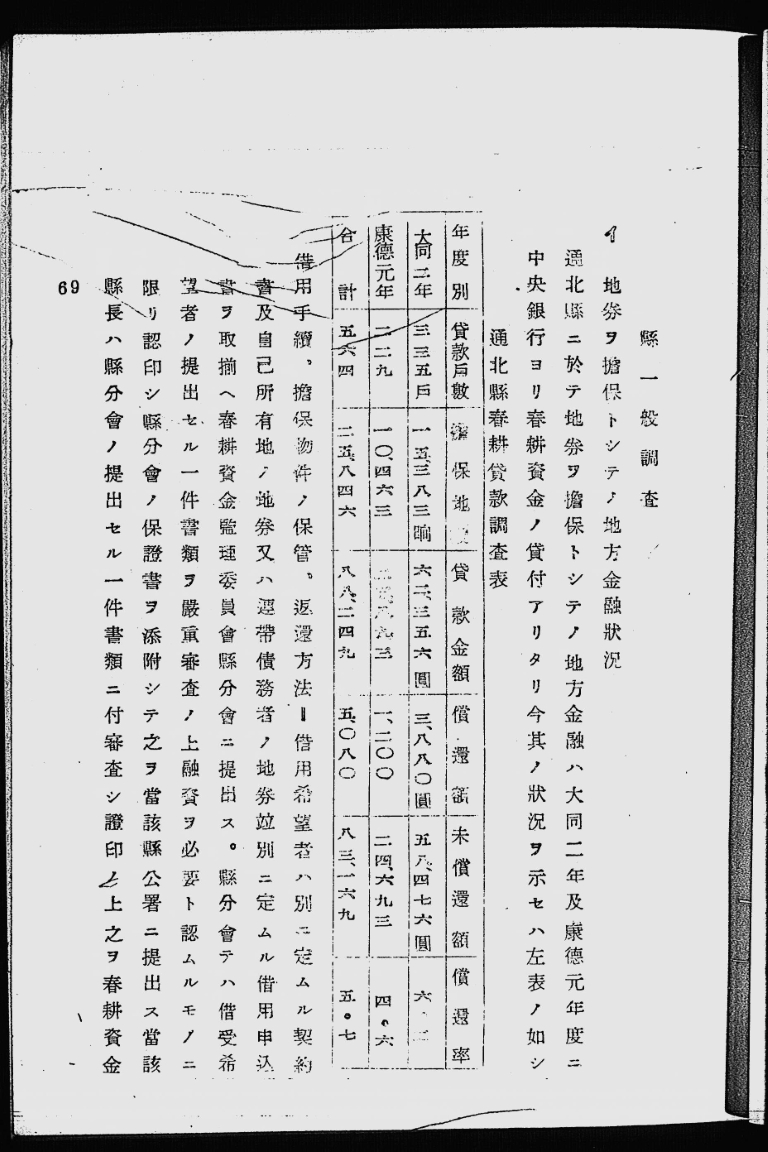 縣一般調査
イ 地券ヲ擔保トシテノ地方金融狀況
通北縣ニ於テ地券ヲ擔保トシテノ地方金融ハ大同二年及康德元年度ニ
中央銀行ヨリ春耕資金ノ貸付アリタリ今其ノ狀況ヲ示セハ左表ノ如シ
通北縣春耕貸款調査表
年度別 貸款戶數 擔保地 貸款金額 償還額 未償還額 償還率
大同二年 三三五戶 一五、三八三晌 六二、三五六圓 三、八八〇圓 五八、四七六圓 六・二
康德元年 二二九 一〇、四六三 八九三 一、二〇〇 二四、六九三 四・六
合計 五六四 二五、八四六 八八、二四九 五、〇八〇 八三、一六九 五・七
借用手續、擔保物件ノ保管、返還方法‖借用希望者ハ別ニ定ムル契約
書及自己所有地ノ地券又ハ連帶債務者ノ地券竝別ニ定ムル借用申込
書ヲ取揃ヘ春耕資金監理委員會縣分會ニ提出ス。縣分會テハ借受希
望者ノ提出セル一件書類ヲ嚴重審査ノ上融資ヲ必要ト認ムルモノニ
限リ認印シ縣分會ノ保證書ヲ添附シテ之ヲ當該縣公署ニ提出ス當該
縣長ハ縣分會ノ提出セル一件書類ニ付審査シ證印ノ上之ヲ春耕資金
69